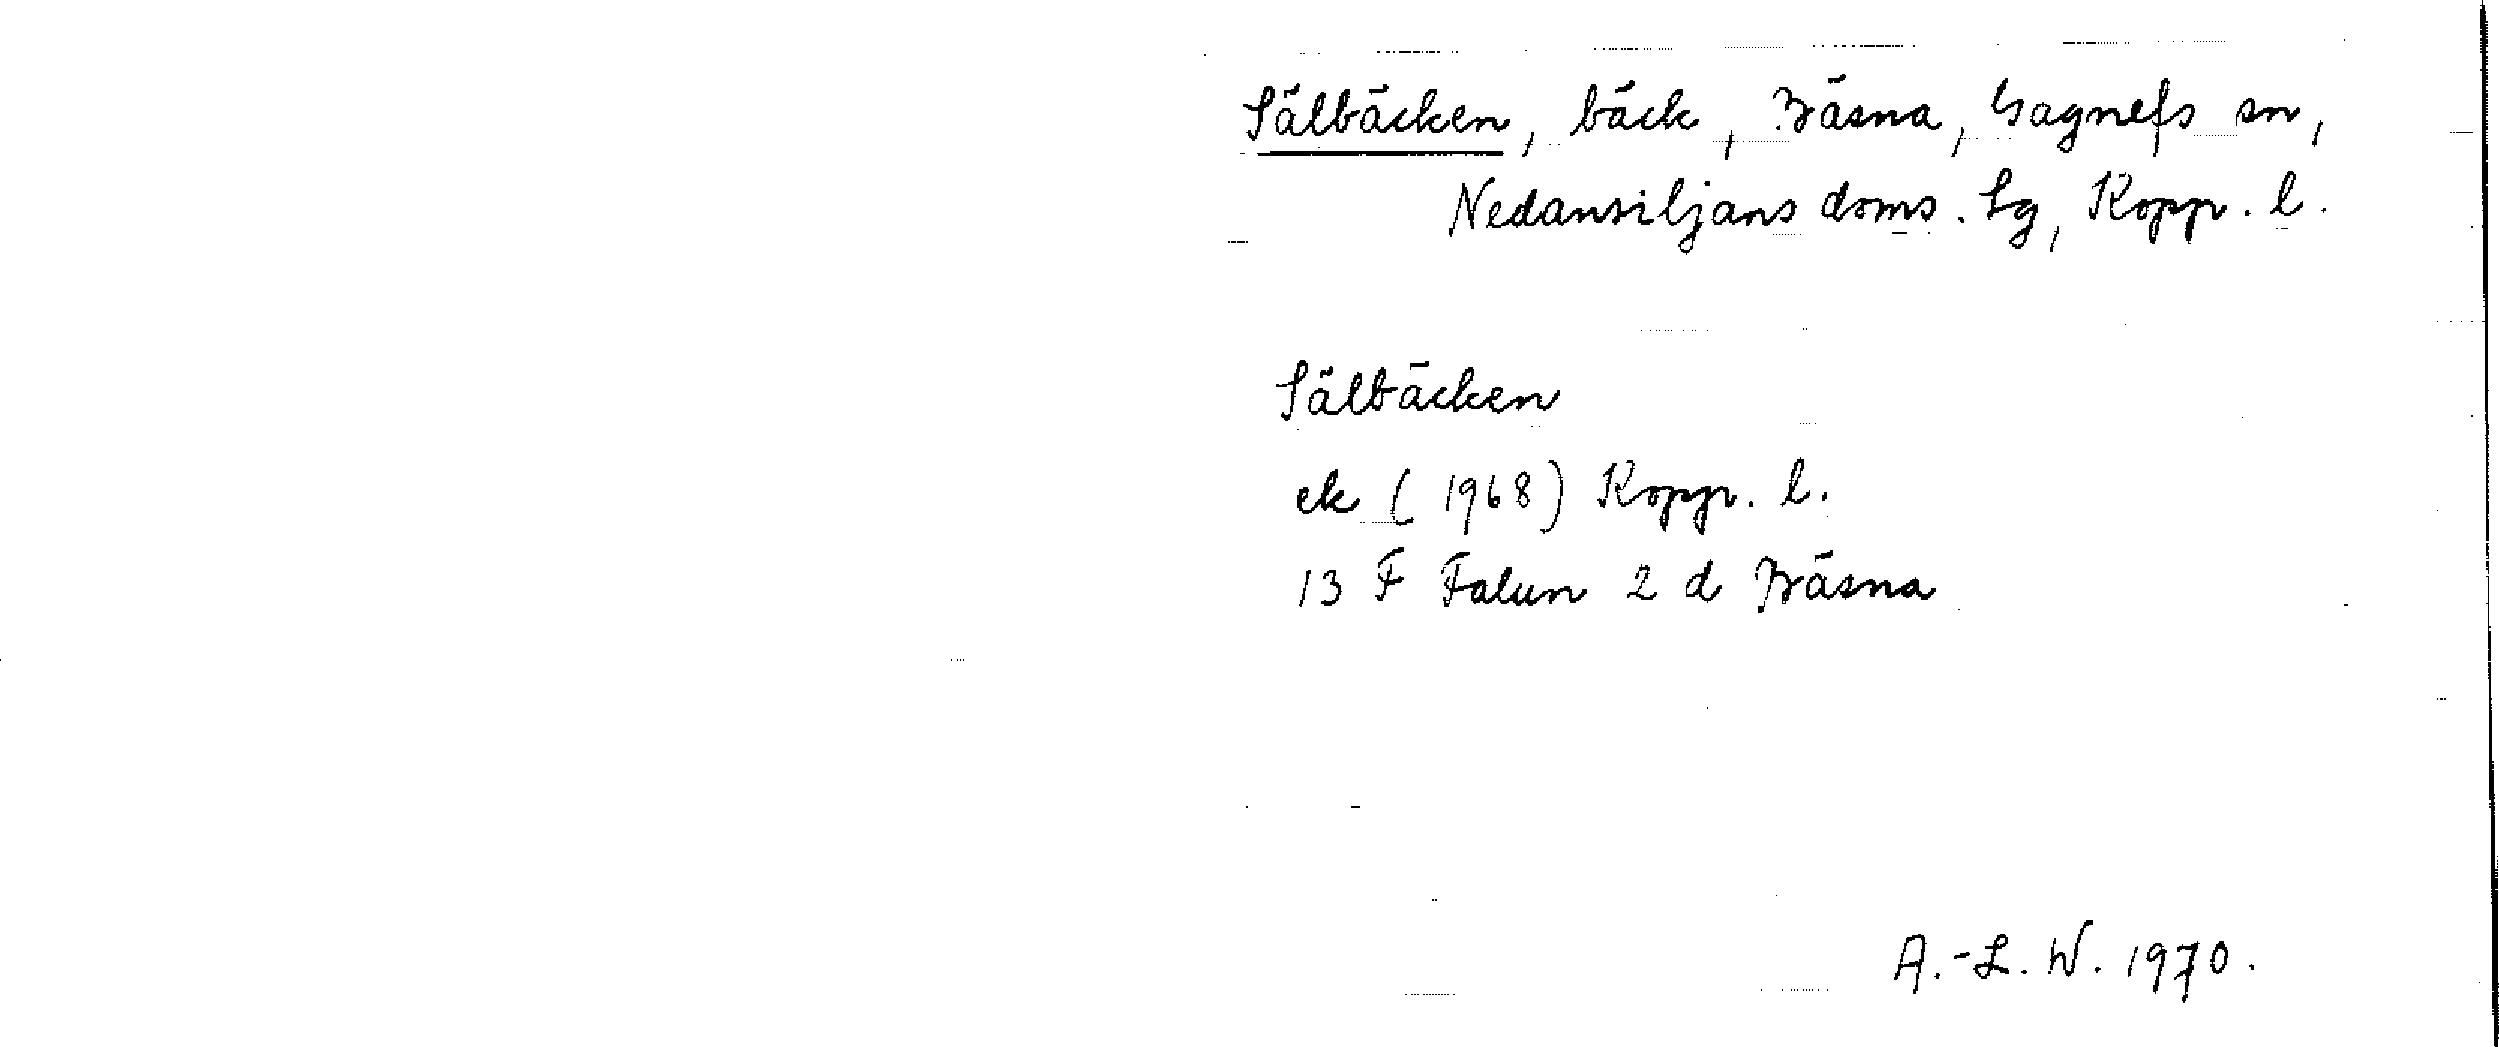 Sälbäcken, bäck, Bäsna, Gagnefs sn,
Nedansiljans doms. Lg, Kopp. l.
Sälbäcken
ek (1968) Kopp. l.
13 F Falun 2 d Bäsna
A.-L. W. 1970.